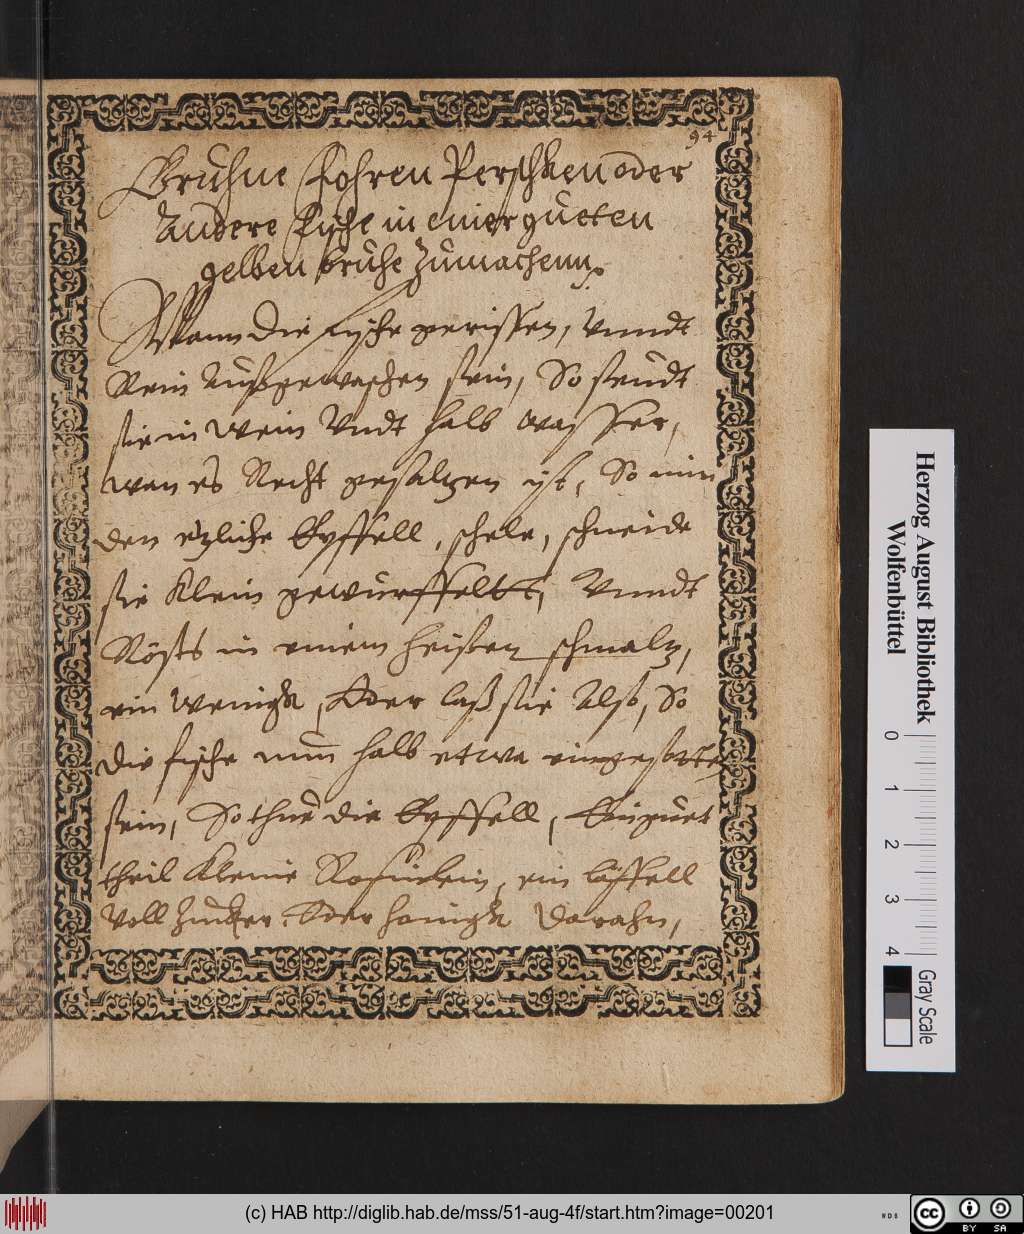 94
Gruhne Fohren Perschken oder
Andere Fische in einer gueten
gelben bruhe Zumachenn.
Wann Die Fische gerissen, Unndt
Rein Außgewaschen sein, So seudt
sie in Wein Undt halb Wasser,
wan es Recht gesaltzen ist, So nim
den etzliche Epffell, schele, schneide
sie Klein gewürffeltt, Unndt
Rösts in einem heissen schmaltz,
ein wenigk, Oder laß sie Also, So
die fische nun halb etwa eingesotten
sein, So thue die Epffell, Ein guet
theil Kleine Rosinlein, ein löffell
Voll Zucker Oder honigk Darahn,
Herzog August Bibliothek
Wolfenbüttel
0 1 2 3 4
Gray Scale
(c) HAB http://diglib.hab.de/mss/51-aug-4f/start.htm?image=00201
WDB
cc BY SA